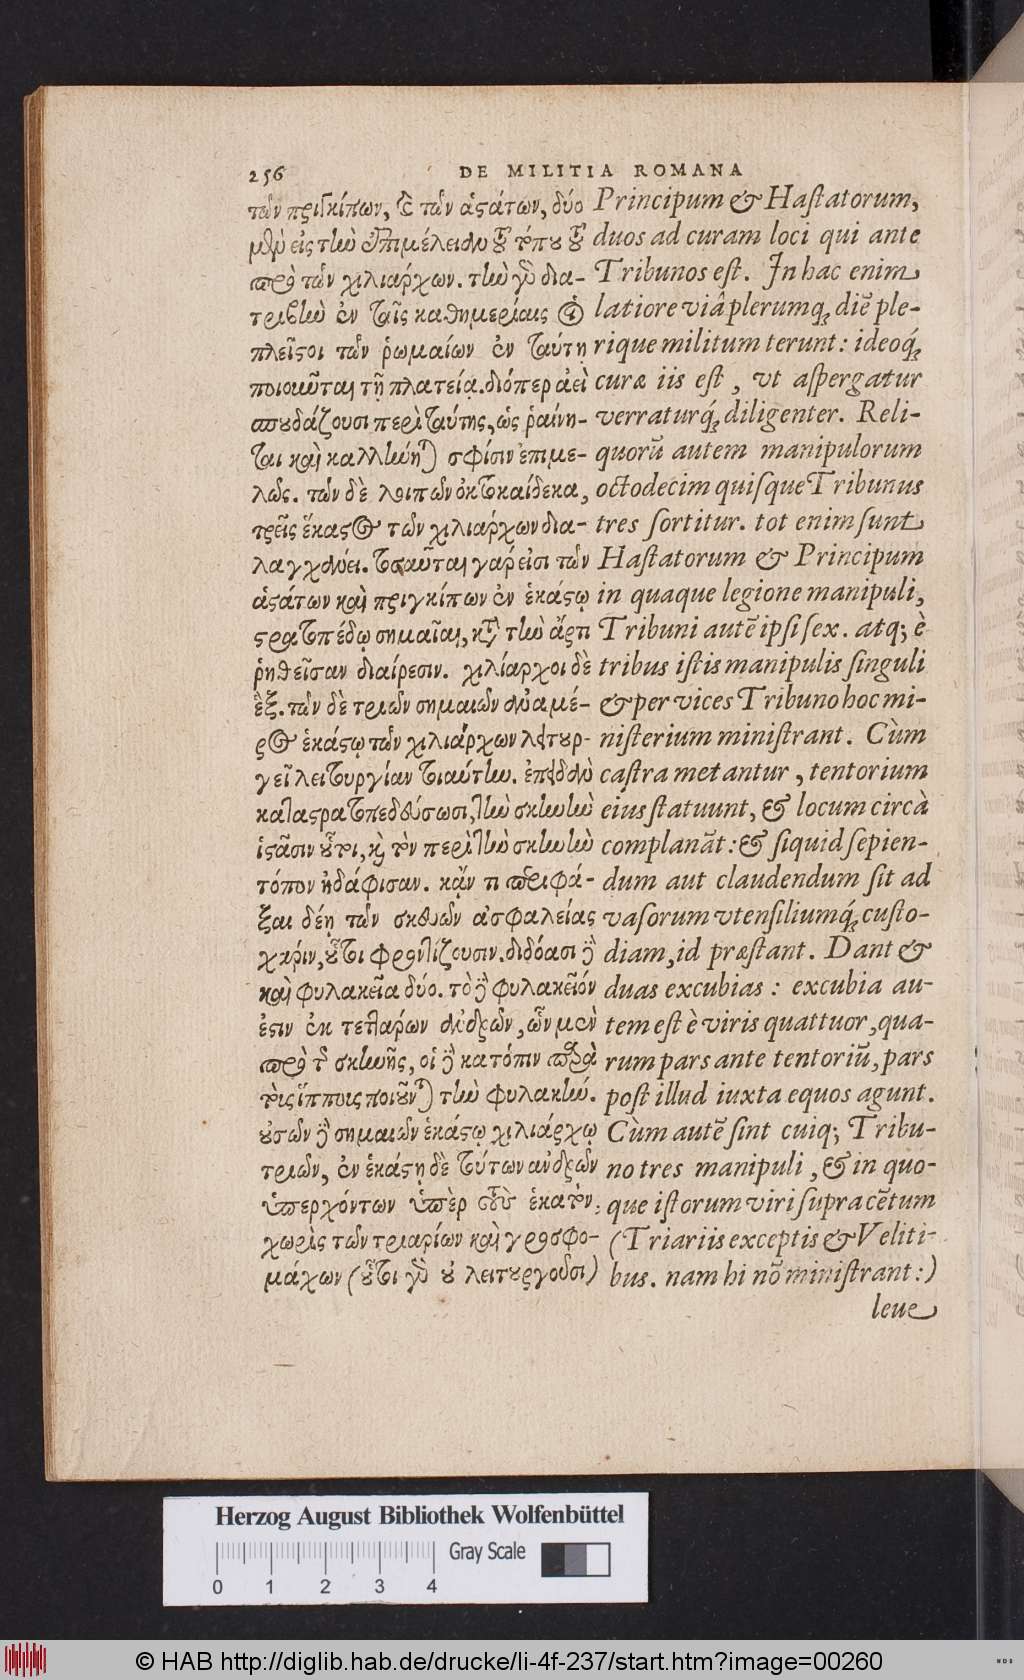 256
DE MILITIA ROMANA
τῶν πριγκίπων, καὶ τῶν ἁϛάτων, δύο
μὲν εἰς τὴν ἐπιμέλειαν τοῦ τόπου τοῦ
πρὸ τῶν χιλιάρχων. τὴν γὸ δια-
τριβὴν ἐν ταῖς καθημερίαις οἱ
πλεῖϛοι τῶν ῥωμαίων ἐν ταύτῃ
ποιοῦνται τῇ πλατείᾳ. διόπερ ἀεὶ
σπουδάζουσι περὶ ταύτης, ὡς ῥαίνη-
ται καὶ καλλύνηται σφίσιν ἐπιμε-
λῶς. τῶν δὲ λοιπῶν ὀκτωκαίδεκα,
τρεῖς ἕκαϛος τῶν χιλιάρχων δια-
λαγχάνει. τοσαῦται γάρ εἰσι τῶν
ἁϛάτων καὶ πριγκίπων ἐν ἑκάϛῳ
ϛρατοπέδῳ σημαῖαι, κατὰ τὴν ἄρτι
ῥηθεῖσαν διαίρεσιν. χιλίαρχοι δὲ
ἓξ. τῶν δὲ τριῶν σημαιῶν ἀνὰ μέ-
ρος ἑκάϛῳ τῶν χιλιάρχων λειτουρ-
γεῖ λειτουργίαν τοιαύτην. ἐπειδὰν
καταϛρατοπεδεύσωσι, τὴν σκηνὴν
ἱϛᾶσιν οὗτοι, καὶ τὸν περὶ τὴν σκηνὴν
τόπον ἠδάφισαν. κἄν τι περιφρά-
ξαι δέῃ τῶν σκευῶν ἀσφαλείας
χάριν, οὗτοι φροντίζουσιν. διδόασι δὲ
καὶ φυλακεῖα δύο. τὸ δὲ φυλακεῖόν
ἐϛιν ἐκ τεττάρων ἀνδρῶν, ὧν μὲν
πρὸ τῆς σκηνῆς, οἱ δὲ κατόπιν παρὰ
τοὺς ἵππους ποιοῦνται τὴν φυλακήν.
οὐσῶν δὲ σημαιῶν ἑκάϛῳ χιλιάρχῳ
τριῶν, ἐν ἑκάϛῃ δὲ τούτων ἀνδρῶν
ὑπερχόντων ὑπὲρ τοὺς ἑκατὸν,
χωρὶς τῶν τριαρίων καὶ γροσφο-
μάχων (οὗτοι γὸ οὐ λειτουργοῦσι)
Principum & Haſtatorum,
duos ad curam loci qui ante
Tribunos eſt. In hac enim
latiore viâ plerumq; diẽ ple-
rique militum terunt: ideoq́;
curæ iis eſt, vt aſpergatur
verraturq́; diligenter. Reli-
quorũ autem manipulorum
octodecim quiſque Tribunus
tres ſortitur. tot enim ſunt
Haſtatorum & Principum
in quaque legione manipuli,
Tribuni autẽ ipſi ſex. atq; è
tribus iſtis manipulis ſinguli
& per vices Tribuno hoc mi-
niſterium miniſtrant. Cùm
caſtra metantur, tentorium
eius ſtatuunt, & locum circà
complanãt: & ſiquid ſepien-
dum aut claudendum ſit ad
vaſorum vtenſiliumq́; cuſto-
diam, id præſtant. Dant &
duas excubias: excubia au-
tem eſt è viris quattuor, qua-
rum pars ante tentoriũ, pars
poſt illud iuxta equos agunt.
Cùm autẽ ſint cuiq; Tribu-
no tres manipuli, & in quo-
que iſtorum viri ſupra cẽtum
(Triariis exceptis & Veliti-
bus. nam hi nõ miniſtrant:)
leue
Herzog August Bibliothek Wolfenbüttel
Gray Scale
0 1 2 3 4
© HAB http://diglib.hab.de/drucke/li-4f-237/start.htm?image=00260